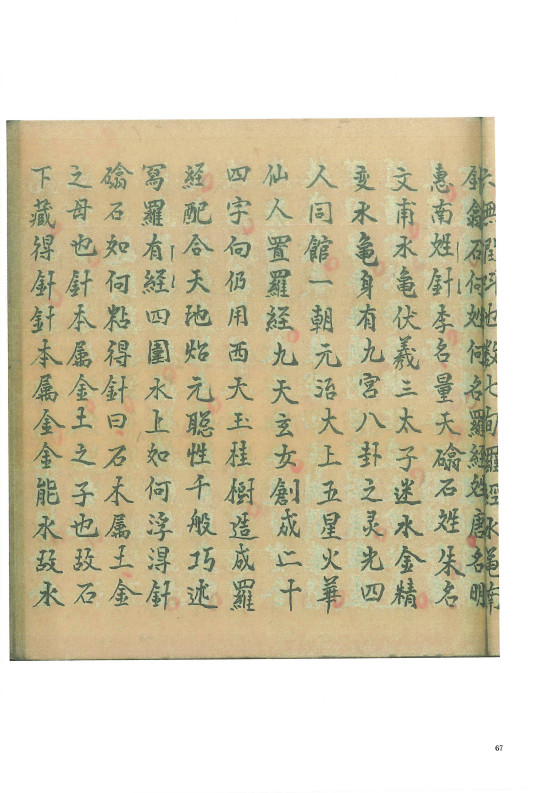 針翁石何姓何名羅經姓唐名明
惠南姓針李名量天磁石姓朱名
文甫水亀伏羲三太子迷水金精
变水亀身有九宮八卦之灵光四
人同館一朝元治大上五星火華
仙人置羅經九天玄女創成二十
四字向仍用西天玉桂樹造成羅
經配合天地炤元聰性千般巧述
冩羅有經四圍水上如何浮得針
磁石如何粘得針曰石本属土金
之母也針本属金土之子也故石
下藏得針針本属金金能水故水
67